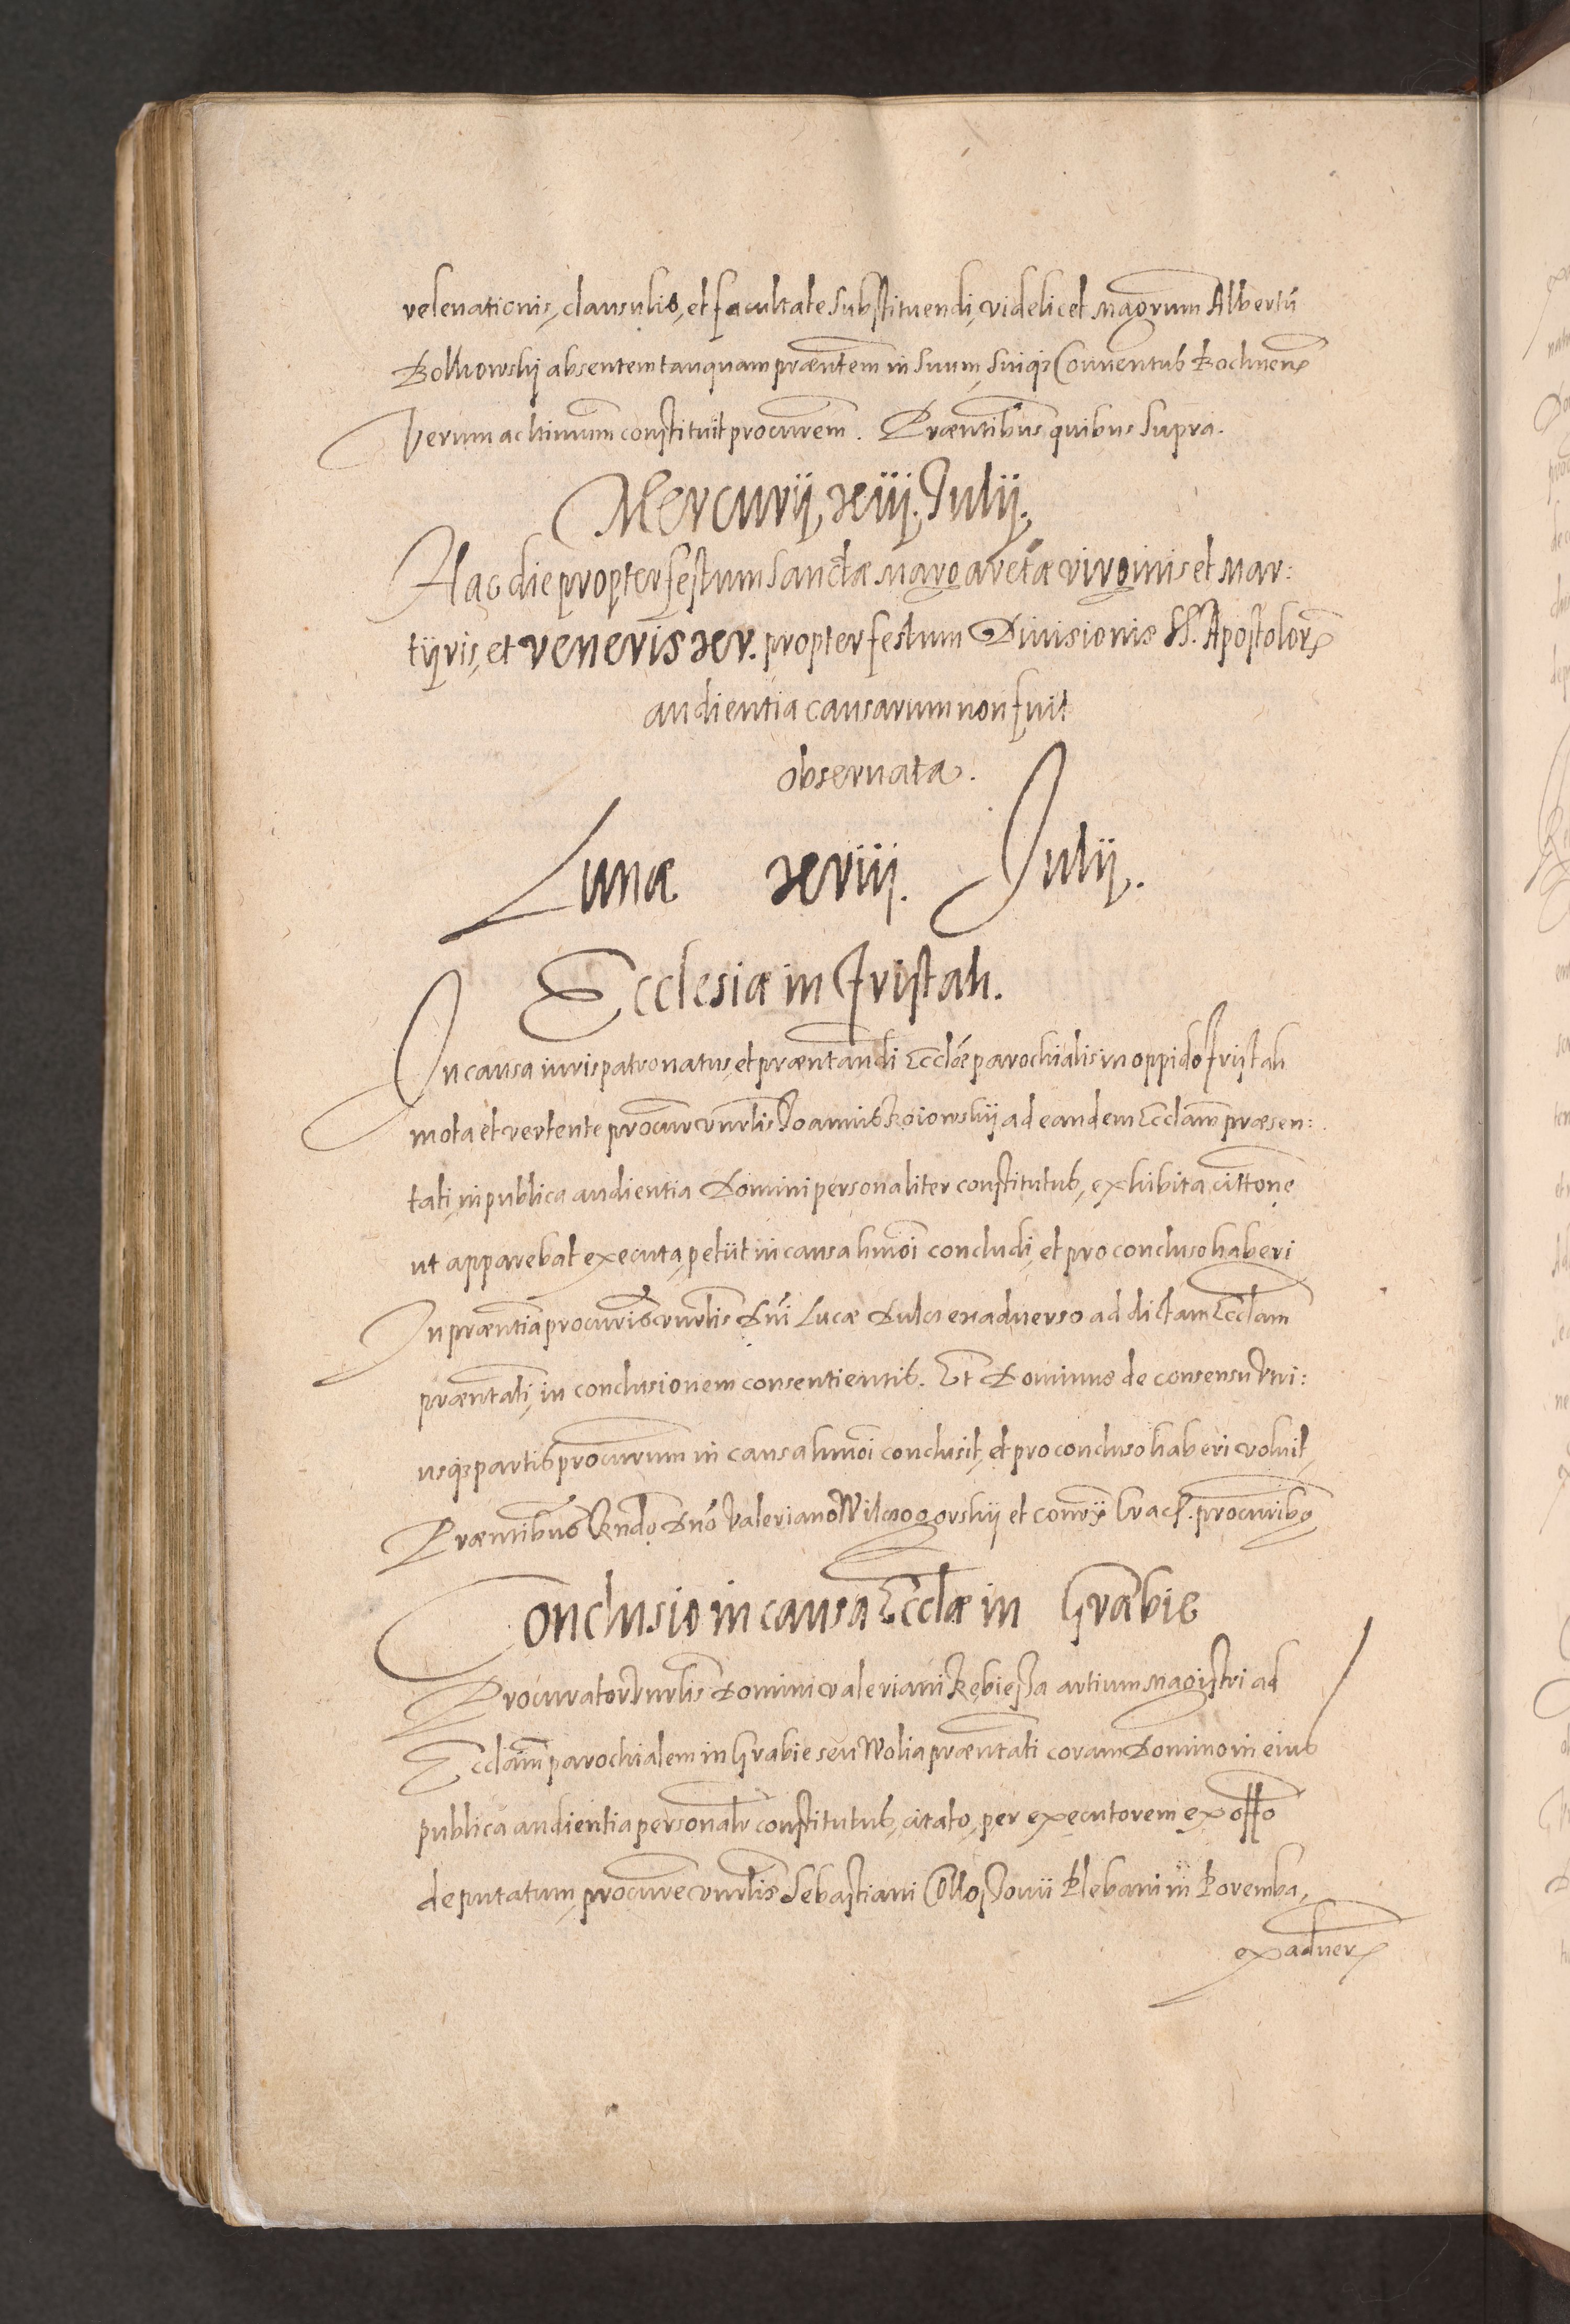 relevationis, clausulis, et facultate substituendi, videlicet Magrum Albertũ
absentem tanquam præntem in suum, suiq; Conventus Bochnen
Verum ac ltimum constituit procurem. Præntibus quibus supra.
Mercurij, xiij. Julij.
Hac die propter festum Sanctæ Margaretæ virginis et Mar:
tijris, et veneris xv. propter festum Divisionis SS. Apostolor
audientia causarum non fuit
observata.
Lunæ xviij. Julij.
Ecclesiæ in Fristak.
In causa iurispatronatus, et præntandi Eccłæ parochialis in oppido Fristak
mota et vertente procur vnrlis Joannis ad eandem Eccłam præsen:
tati, in publica audientia Domini personaliter constitutus, exhibita cittone
ut apparebat executa, petiit in causa hmõi concludi, et pro concluso haberi
In præntia procuris vnrlis Dñi Lucæ ex adverso ad dictam Eccłam
præntati, in conclusionem consentientis. Et Dominus de consensu vtri:
usq; partis procurum in causa hmõi conclusit, et pro concluso haberi voluit,
Præntibus Vendo Dño Valeriano Wilczogorskij et Crac. procuribus
Conclusio in causa Eccłæ in Grabie
Procurator vnrlis Domini Valeriani artium Magistri ad
Eccłam parochialem in Grabie seu Wolia præntati coram Domino in eius
publica audientia personalr constitutus, citato, per executorem ex offo
deputatum, procure vnrlis Sebastiani Plebani in Poremba,
ex advers